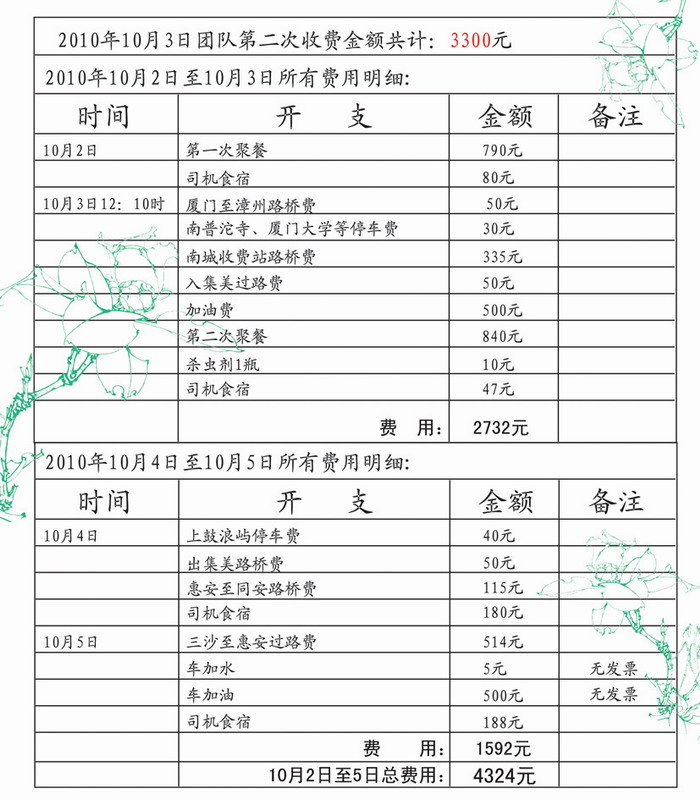 2010年10月3日团队第二次收费金额共计：3300元
2010年10月2日至10月3日所有费用明细：
时间 开 支 金额 备注
10月2日 第一次聚餐 790元
司机食宿 80元
10月3日12：10时 厦门至漳州路桥费 50元
南普沱寺、厦门大学等停车费 30元
南城收费站路桥费 335元
入集美过路费 50元
加油费 500元
第二次聚餐 840元
杀虫剂1瓶 10元
司机食宿 47元
费 用： 2732元
2010年10月4日至10月5日所有费用明细：
时间 开 支 金额 备注
10月4日 上鼓浪屿停车费 40元
出集美路桥费 50元
惠安至同安路桥费 115元
司机食宿 180元
10月5日 三沙至惠安过路费 514元
车加水 5元 无发票
车加油 500元 无发票
司机食宿 188元
费 用： 1592元
10月2日至5日总费用： 4324元